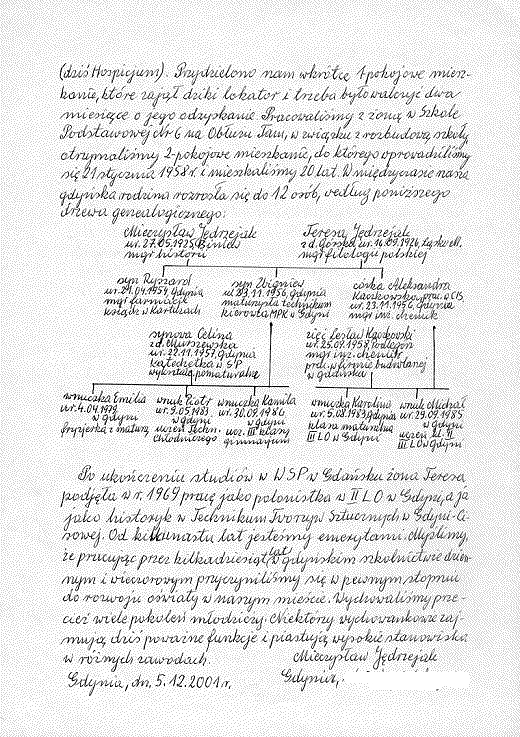 (dziś Hospicjum). Przydzielono nam wkrótce 1-pokojowe miesz-
kanie, które zajął dziki lokator i trzeba było walczyć dwa
miesiące o jego odzyskanie. Pracowaliśmy z żoną w Szkole
Podstawowej Nr 6 na Obłużu Tam, w związku z rozbudową szkoły,
otrzymaliśmy 2-pokojowe mieszkanie, do którego wprowadziliśmy
się 21 stycznia 1958 r. i mieszkaliśmy 20 lat. W międzyczasie nasza
gdyńska rodzina rozrosła się do 12 osób, według poniższego
drzewa genealogicznego:
Mieczysław Jędrzejak
ur. 27.05.1925, Biniew
mgr historii
Teresa Jędrzejak
z d. Górska, ur. 16.09.1926,
mgr filologii polskiej
syn Ryszard
ur. 29.04.1954, Gdynia
mgr farmacji
ksiądz w Kartuzach
syn Zbigniew
ur. 23.11.1956, Gdynia
maturzysta technikum
kierowca MPK w Gdyni
córka Aleksandra
Kaczkowska, prac. UCIS
ur. 23.11.1956, Gdynia
mgr inż. chemik
synowa Celina
z d. Murszewska
ur. 22.11.1957, Gdynia
katechetka w SP
wykształc. pomaturalne
zięć Lesław Kaczkowski
ur. 25.09.1958,
mgr inż. chemik
prac. w firmie budowlanej
w Gdańsku
wnuczka Emilia
ur. 4.04.1979,
w Gdyni
fryzjerka z maturą
wnuk Piotr
ur. 9.05.1983,
w Gdyni
uczeń Techn.
Chłodniczego
wnuczka Kamila
ur. 30.09.1986,
w Gdyni
ucz. III klasy
gimnazjum
wnuczka Karolina
ur. 5.08.1983, Gdynia
klasa maturalna
III LO w Gdyni
wnuk Michał
ur. 29.09.1985
w Gdyni
uczeń kl. II
III LO w Gdyni
Po ukończeniu studiów w WSP w Gdańsku żona Teresa
podjęła w r. 1969 pracę jako polonistka w II LO w Gdyni, a ja
jako historyk w Technikum Tworzyw Sztucznych w Gdyni-Ci-
sowej. Od kilkunastu lat jesteśmy emerytami. Myślimy,
że pracując przez kilkadziesiąt lat w gdyńskim szkolnictwie dzien-
nym i wieczorowym przyczyniliśmy się w pewnym stopniu
do rozwoju oświaty w naszym mieście. Wychowaliśmy prze-
cież wiele pokoleń młodzieży. Niektórzy wychowankowie zaj-
mują dziś poważne funkcje i piastują wysokie stanowiska
w różnych zawodach.
Mieczysław Jędrzejak
Gdynia, dn. 5.12.2001 r,
Gdynia,